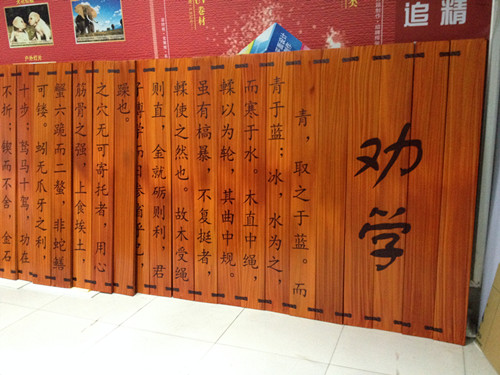 追精
类
卷材
劝学
青，取之于蓝。而
青于蓝；冰，水为之，
而寒于水。木直中绳，
輮以为轮，其曲中规。
虽有槁暴，不复挺者，
輮使之然也。故木受绳
则直，金就砺则利，君
子博学而日参省乎己
躁也。
之穴无可寄托者，用心
筋骨之强，上食埃土，
蟹六跪而二螯，非蛇鳝
可镂。蚓无爪牙之利，
十步；驽马十驾，功在
不折；锲而不舍，金石